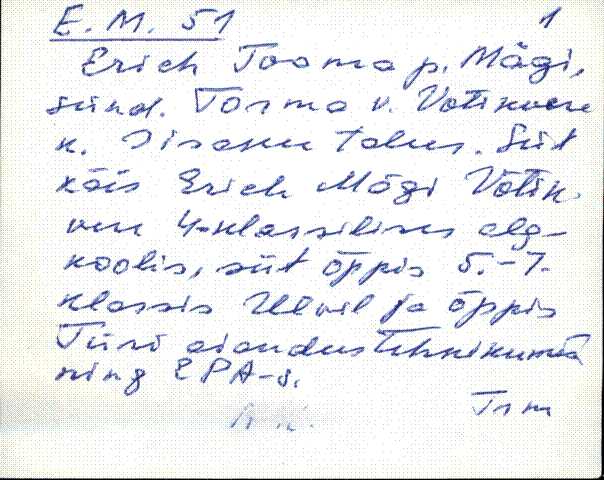 E. M. 51 1
Erich Tooma p. Mägi,
sünd. Torma v. Võtikvere
k. Iisaku talus. Siit
käis Erich Mägi Võtik-
vere 4-klassilises alg-
koolis, siit õppis 5.-7.
klassis Ulvil ja õppis
Türi aiandustehnikumis
ning EPA-s.
Trm